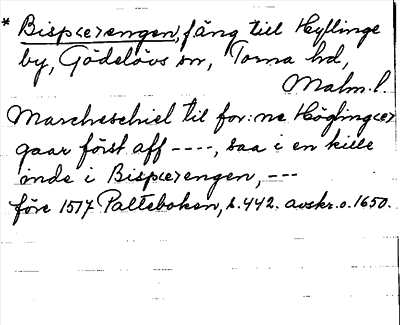 * Bisp(er)engen, äng till Hyllinge
by, Gödelövs sn, Torna hd,
Malm. l.
Marcheschiel til for:ne Högling(er)
gaar först aff ----, saa i en kille
inde i Bisp(er)engen, ---
före 1517 Palteboken, s. 442. avskr. o. 1650.